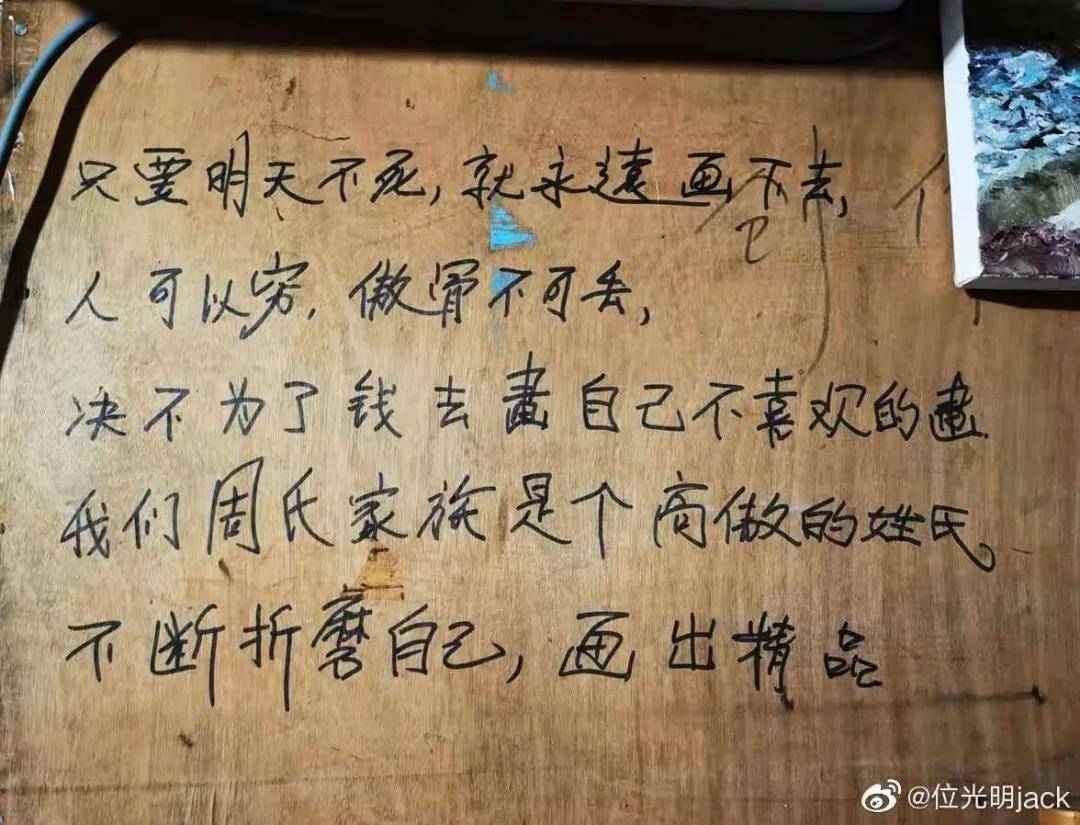 只要明天不死，就永遠画下去，
人可以穷，傲骨不可丢，
决不为了钱去畫自己不喜欢的畫
我们周氏家族是个高傲的姓氏。
不断折磨自己，画出精品
@位光明jack